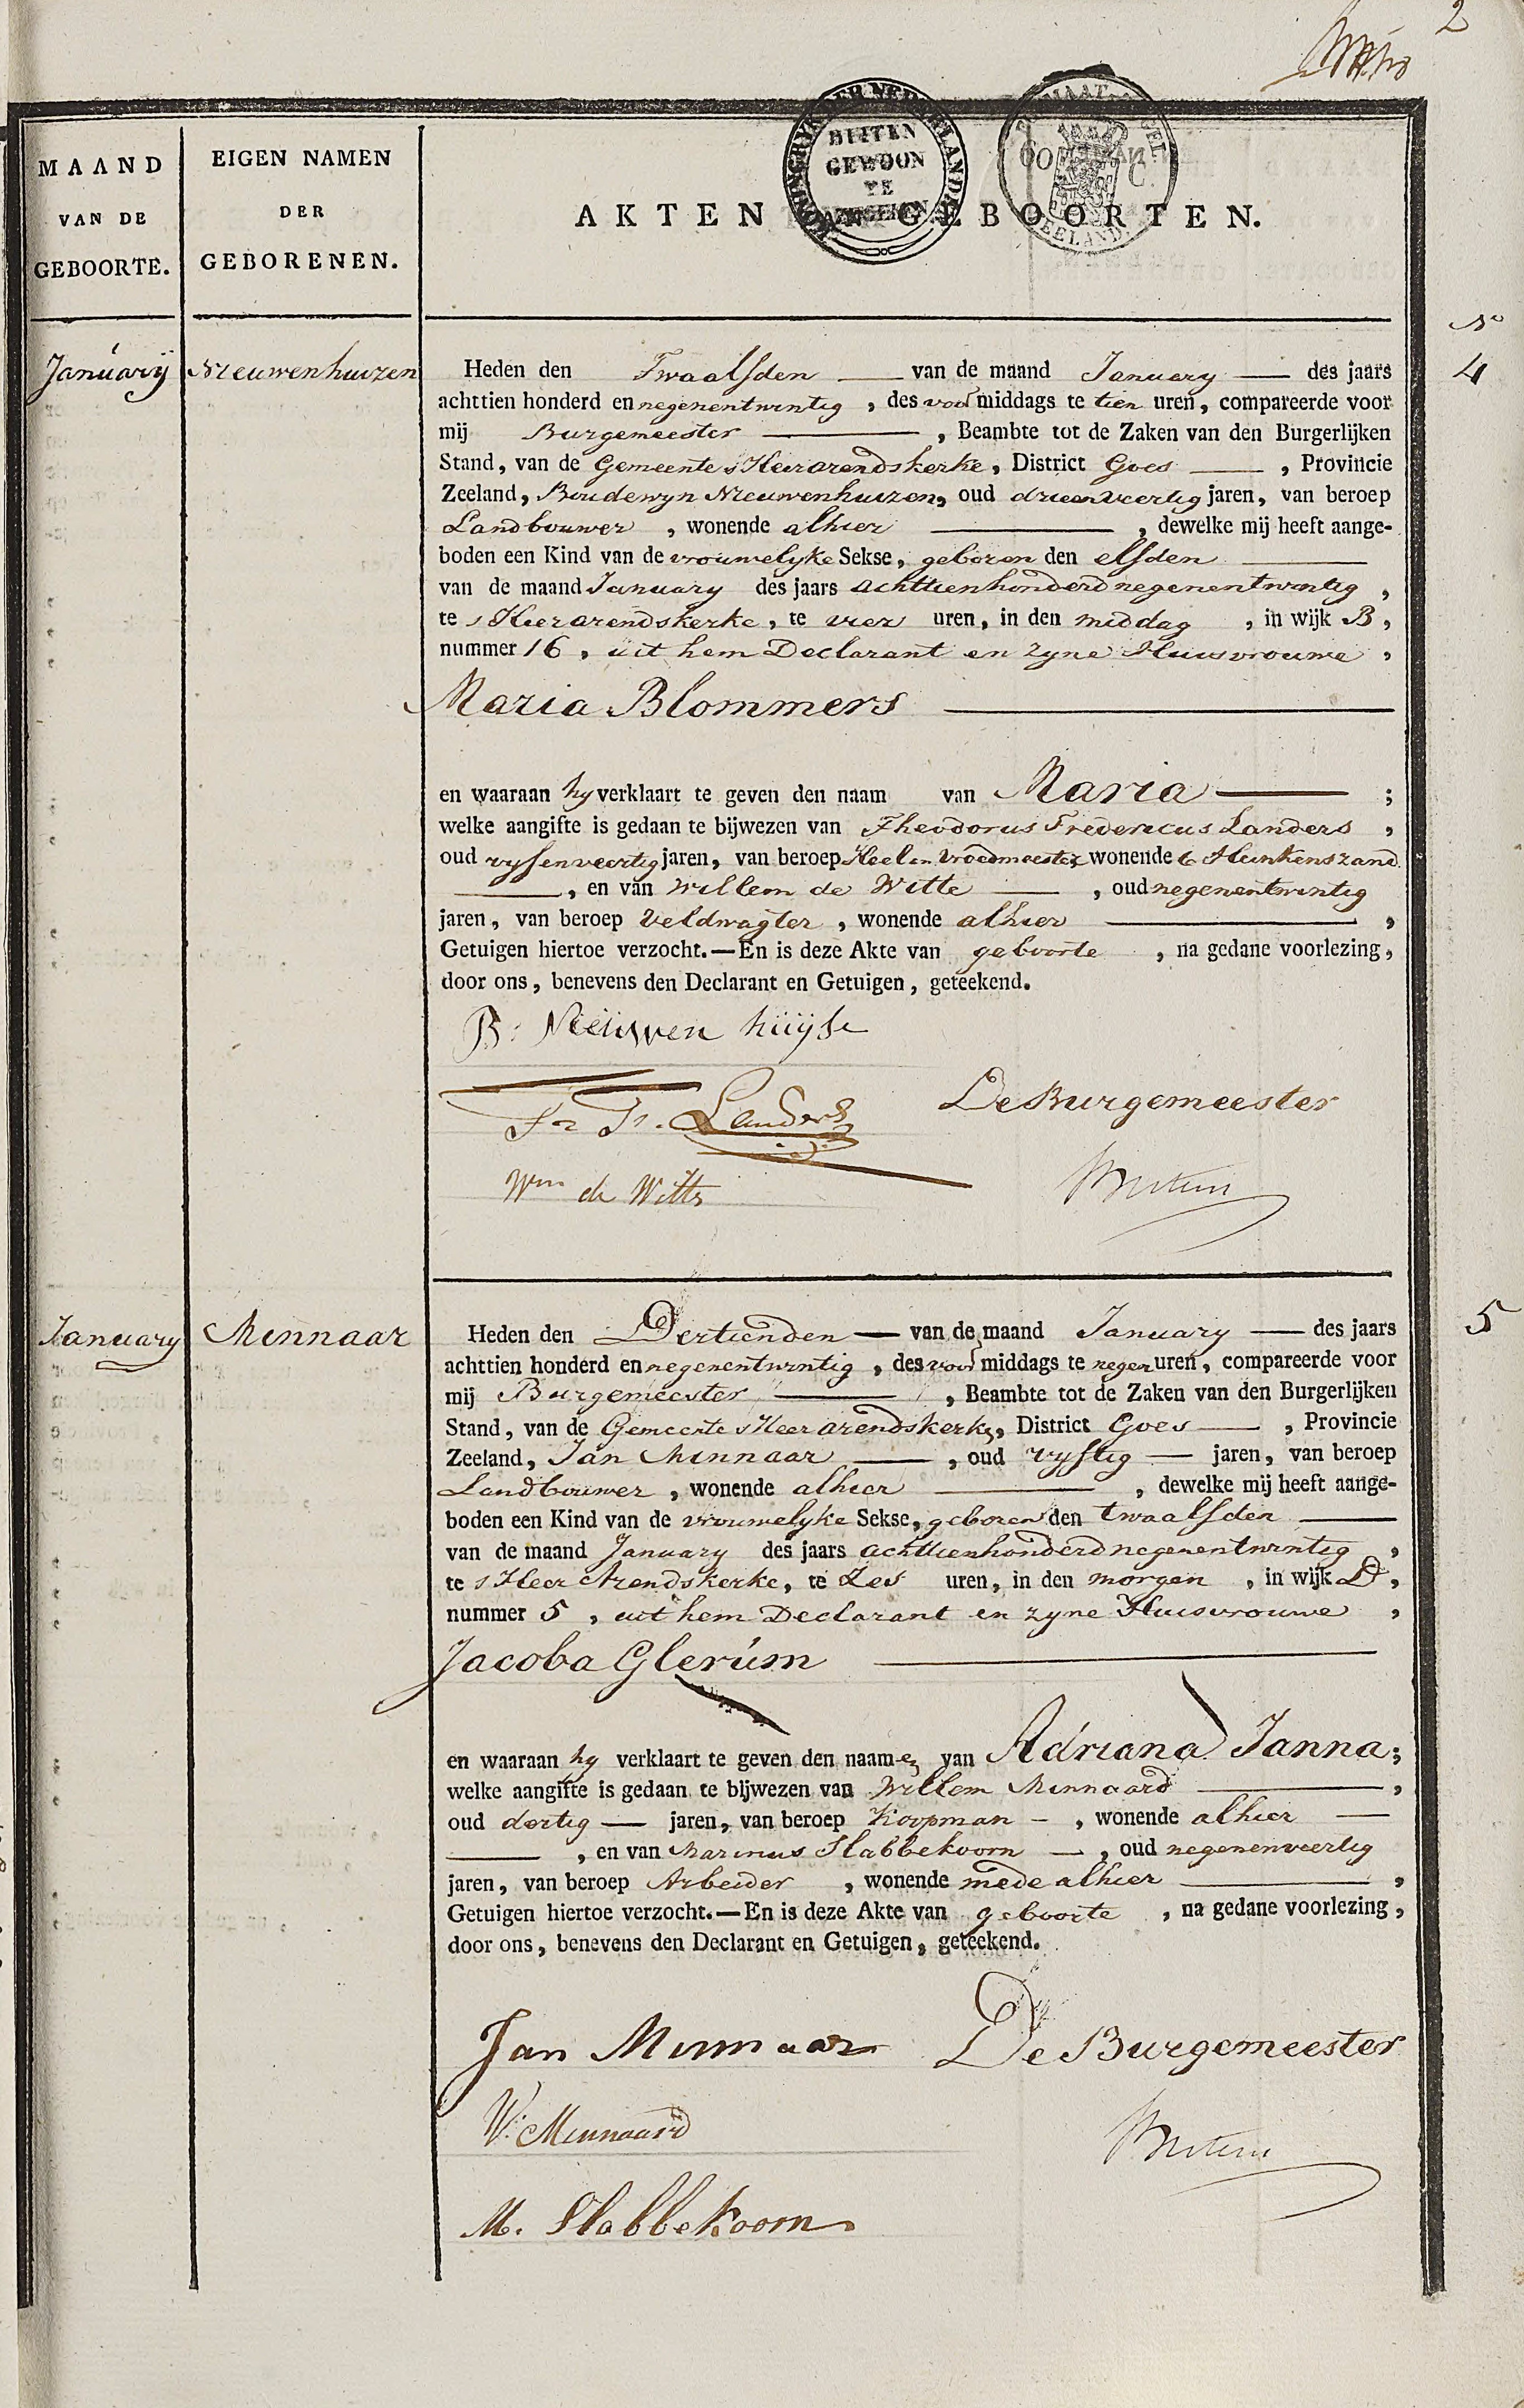 2
MAAND
VAN DE
GEBOORTE.
EIGEN NAMEN
DER
GEBORENEN.
KONINGRYK DER NEDERLANDEN
BUITEN
GEWOON
TE
ZEGELEN
60 C.
ZEELAND
AKTEN VAN GEBOORTEN.
No
4
Januarij
Nieuwenhuizen
Heden den Twaalfden — van de maand January — des jaars
achttien honderd en negenentwintig , des voor middags te tien uren, compareerde voor
mij Burgemeester — , Beambte tot de Zaken van den Burgerlijken
Stand, van de Gemeente s Heerarendskerke, District Goes — , Provincie
Zeeland, Boudewyn Nieuwenhuizen, oud drieenveertig jaren, van beroep
Landbouwer , wonende alhier — , dewelke mij heeft aange-
boden een Kind van de vrouwelyke Sekse, geboren den elfden —
van de maand January des jaars achttienhonderd negenentwintig ,
te s Heerarendskerke, te vier uren, in den middag , in wijk B,
nummer 16 , uit hem Declarant en zyne Huisvrouwe ,
Maria Blommers —
en waaraan hy verklaart te geven den naam van Maria — ;
welke aangifte is gedaan te bijwezen van Theodorus Fredericus Landers ,
oud vyfenveertig jaren, van beroep Heel en Vroedmeester wonende te Heinkenszand
— , en van Willem de Witte — , oud negenentwintig
jaren, van beroep Veldwagter , wonende alhier — ,
Getuigen hiertoe verzocht.—En is deze Akte van geboorte , na gedane voorlezing,
door ons, benevens den Declarant en Getuigen, geteekend.
B: Nieuwen huijse
Landers
De Burgemeester
Wm de Witte
5
January
Minnaar
Heden den Dertienden — van de maand January — des jaars
achttien honderd en negenentwintig , des voor middags te negen uren, compareerde voor
mij Burgemeester — , Beambte tot de Zaken van den Burgerlijken
Stand, van de Gemeente s Heer arendskerke, District Goes — , Provincie
Zeeland, Jan Minnaar — , oud vyftig — jaren, van beroep
Landbouwer , wonende alhier — , dewelke mij heeft aange-
boden een Kind van de vrouwelyke Sekse, geboren den twaalfden —
van de maand January des jaars achttienhonderd negenentwintig ,
te s Heer Arendskerke, te Zes uren, in den morgen , in wijk D,
nummer 5 , uit hem Declarant en zyne Huisvrouwe ,
Jacoba Glerúm —
en waaraan hy verklaart te geven den naam en van Adriana Janna;
welke aangifte is gedaan te bijwezen van Willem Minnaard — ,
oud dertig — jaren, van beroep Koopman — , wonende alhier —
— , en van Marinus Slabbekoorn — , oud negenenveertig
jaren, van beroep Arbeider , wonende mede alhier — ,
Getuigen hiertoe verzocht.—En is deze Akte van geboorte , na gedane voorlezing,
door ons, benevens den Declarant en Getuigen, geteekend.
Jan Minnaar
De Burgemeester
W: Minnaard
M. Slabbekoorn